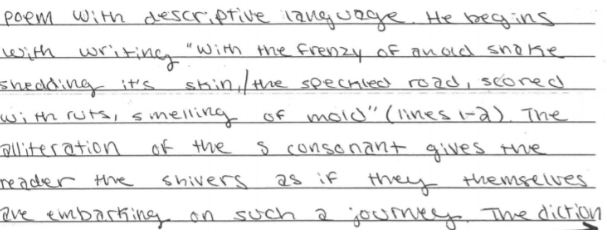 poem with descriptive language. He begins
with writing "With the frenzy of an old snake
shedding it's skin,/the speckled road, scored
with ruts, smelling of mold" (lines 1-2). The
alliteration of the s consonant gives the
reader the shivers as if they themselves
are embarking on such a journey. The diction